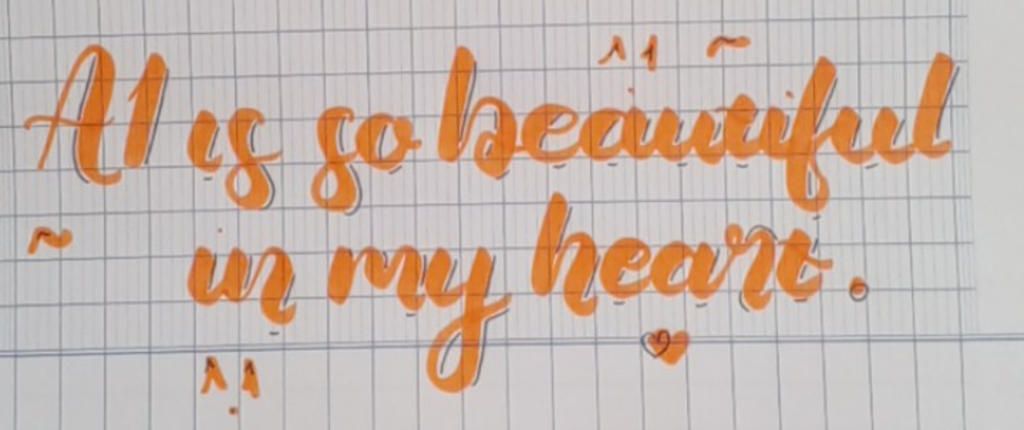 AI is so beautiful
in my heart.